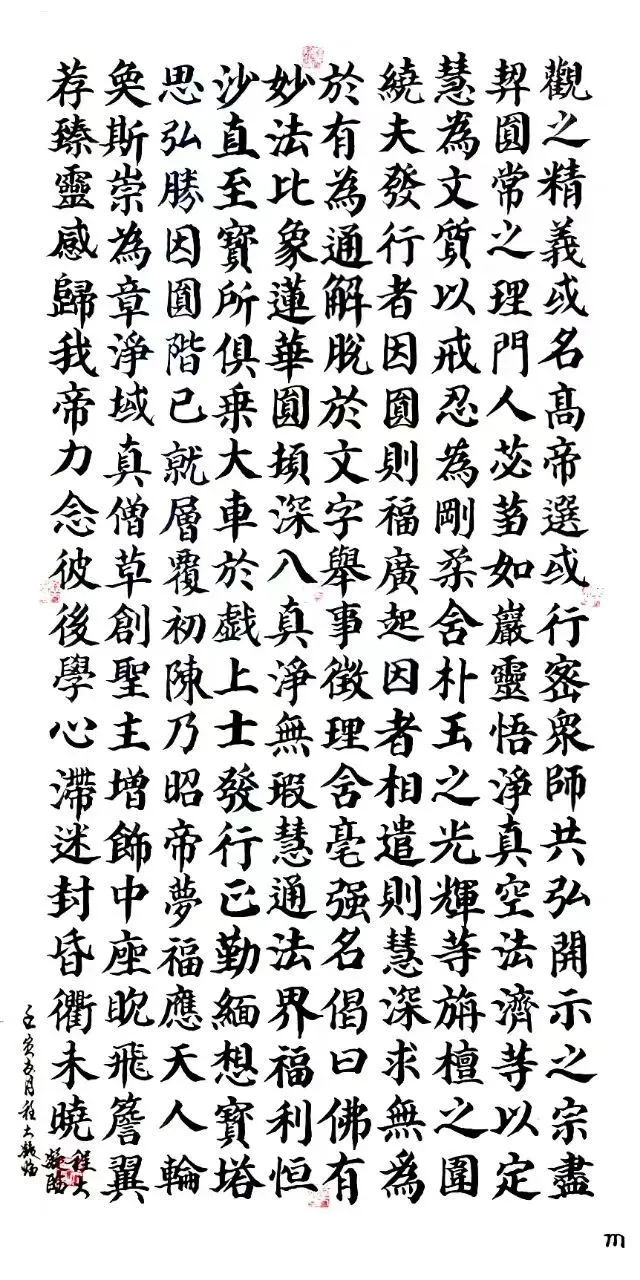 觀之精義或名高帝選或行密衆師共弘開示之宗盡
契圓常之理門人苾蒭如巖靈悟淨真空法濟等以定
慧為文質以戒忍為剛柔含朴玉之光輝等旃檀之圍
繞夫發行者因圓則福廣起因者相遣則慧深求無為
於有為通解脫於文字舉事徵理含毫强名偈曰佛有
妙法比象蓮華圓頓深入真淨無瑕慧通法界福利恒
沙直至寶所俱乘大車於戲上士發行正勤緬想寶塔
思弘勝因圓階已就層覆初陳乃昭帝夢福應天人輪
奐斯崇為章淨域真僧草創聖主增飾中座眈飛簷翼
荐臻靈感歸我帝力念彼後學心滯迷封昏衢未曉
壬寅五月程大